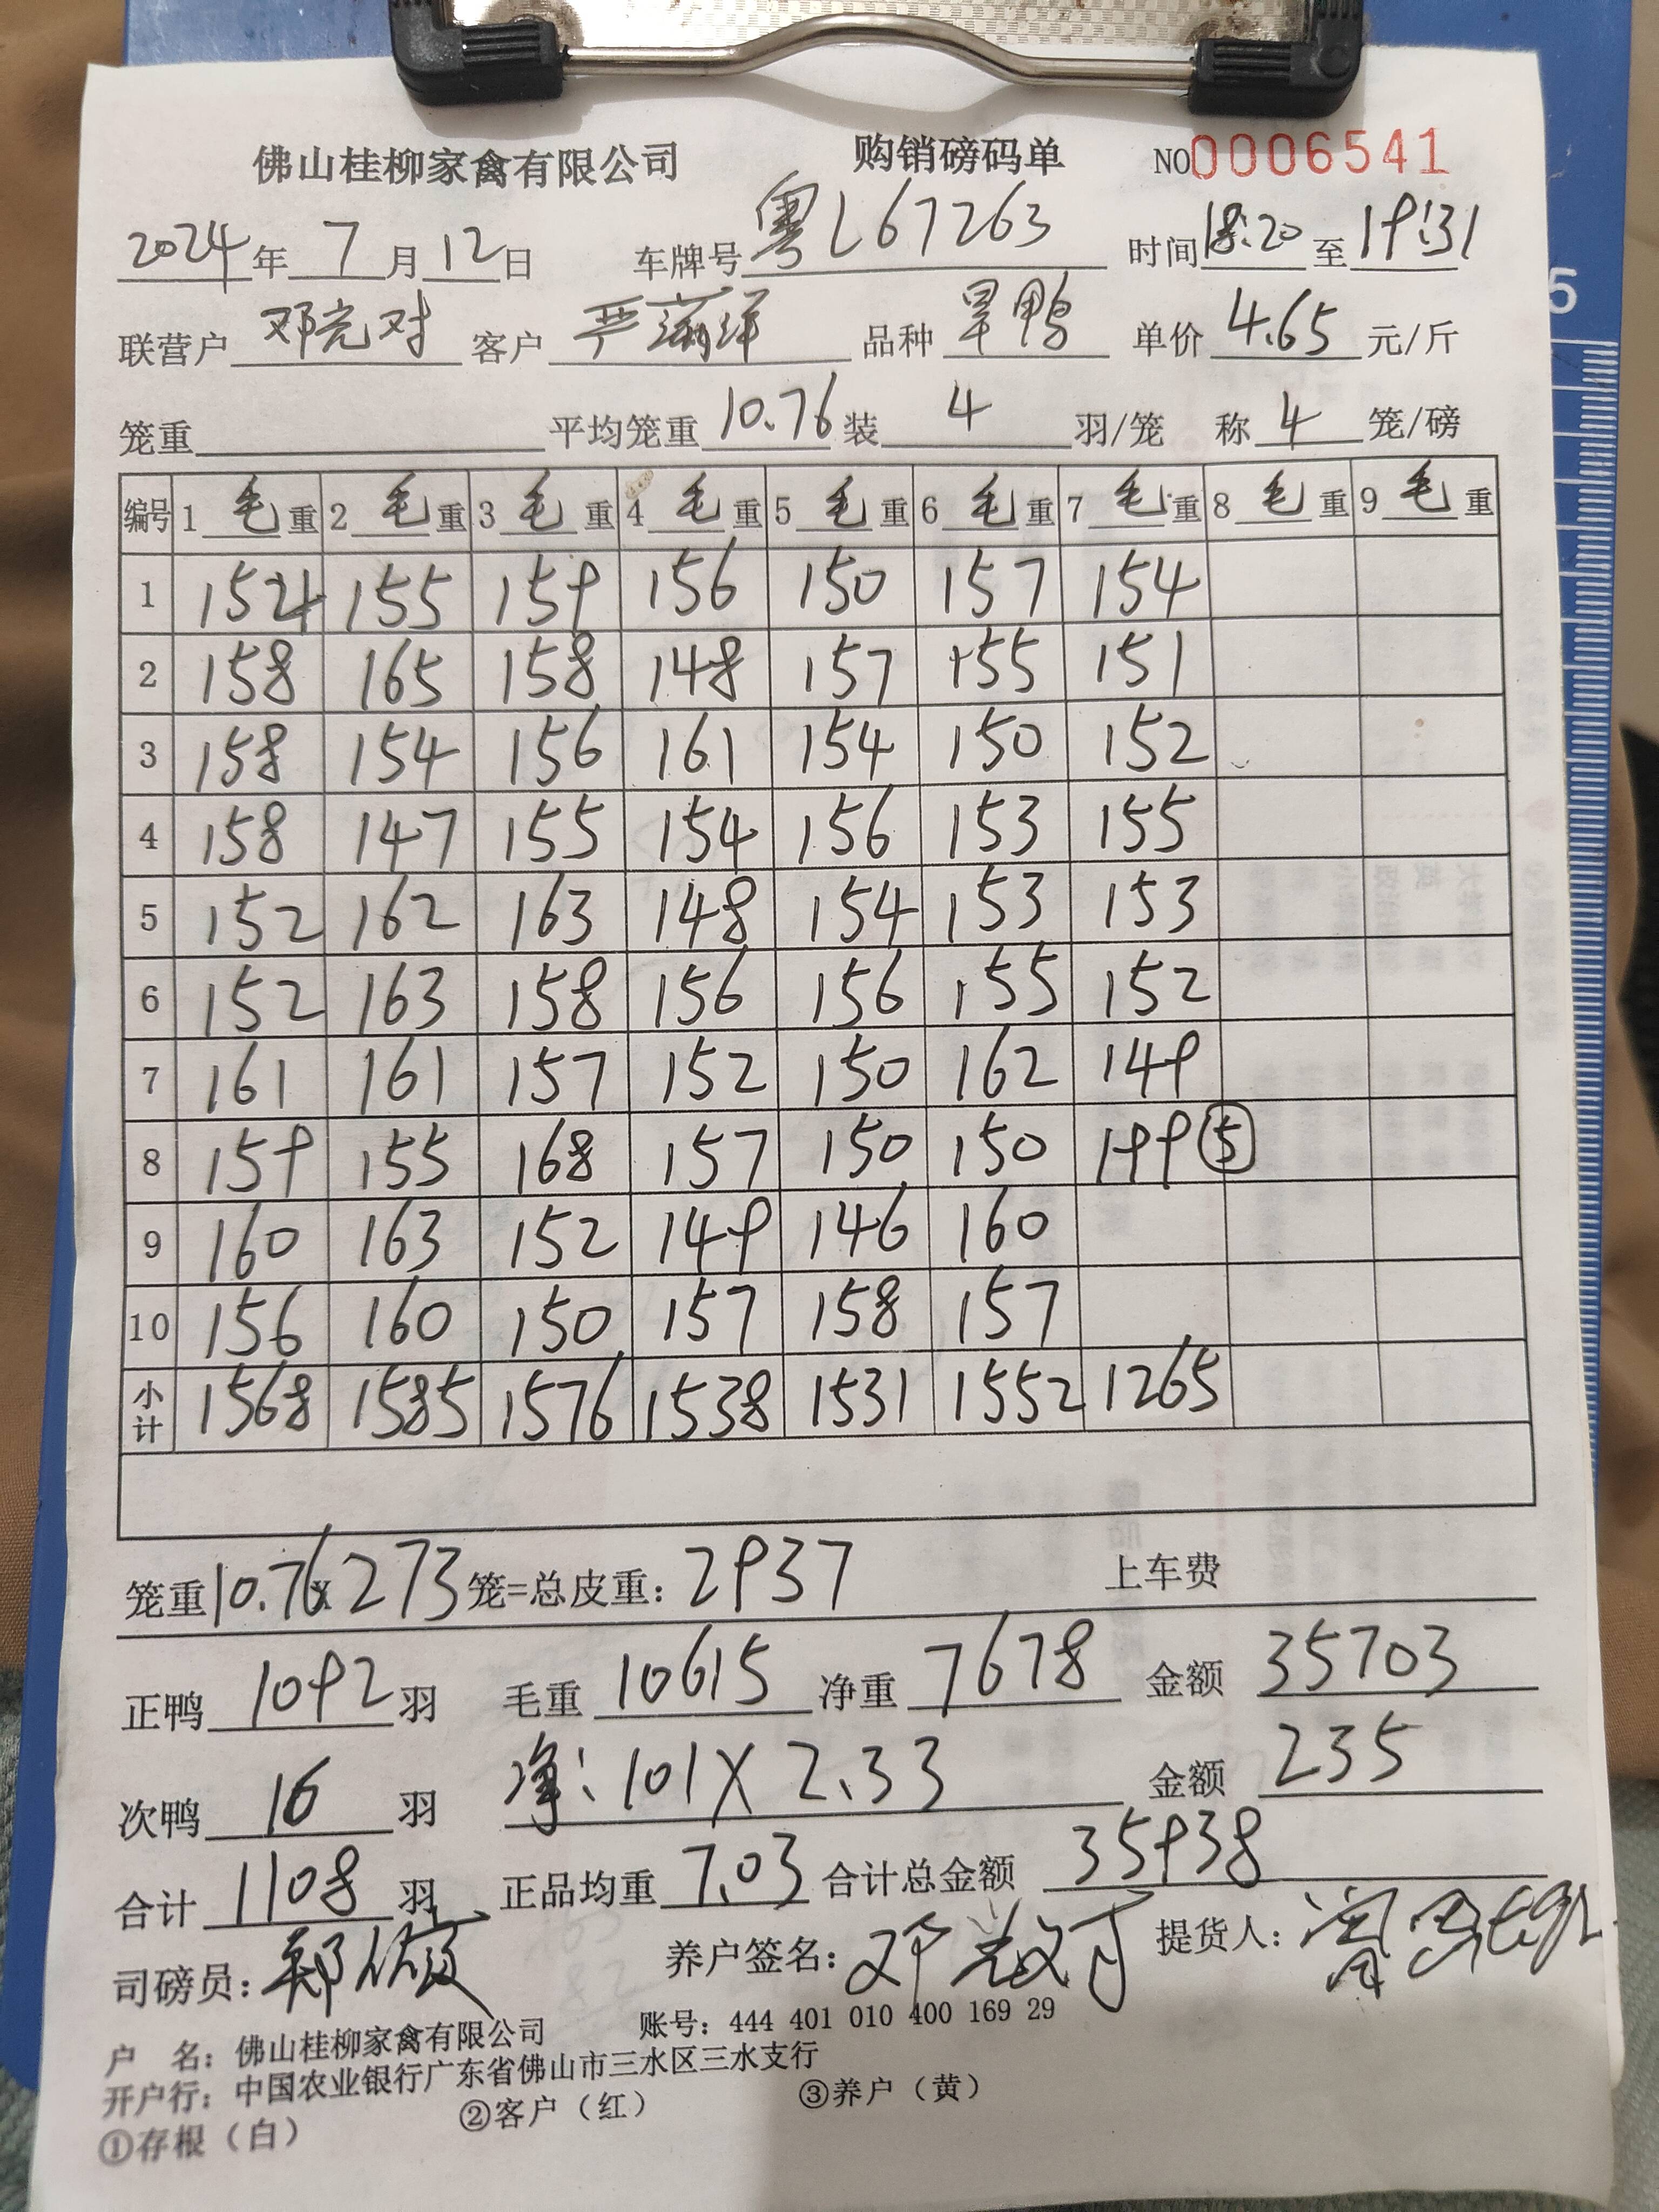 佛山桂柳家禽有限公司 购销磅码单 NO0006541
2024年 7 月 12 日 车牌号 粤L67263 时间 18:20 至 19:31
联营户 邓光对 客户 严 品种 旱鸭 单价 4.65 元/斤
笼重 平均笼重 10.76 装 4 羽/笼 称 4 笼/磅
编号 1 毛 重 2 毛 重 3 毛 重 4 毛 重 5 毛 重 6 毛 重 7 毛 重 8 毛 重 9 毛 重
1 154 155 159 156 150 157 154
2 158 165 158 148 157 155 151
3 158 154 156 161 154 150 152
4 158 147 155 154 156 153 155
5 152 162 163 148 154 153 153
6 152 163 158 156 156 155 152
7 161 161 157 152 150 162 149
8 159 155 168 157 150 150 199 ⑤
9 160 163 152 149 146 160
10 156 160 150 157 158 157
小计 1568 1585 1576 1538 1531 1552 1265
笼重 10.76 x 273 笼=总皮重: 2937 上车费
正鸭 1092 羽 毛重 10615 净重 7678 金额 35703
次鸭 16 羽 净: 101 X 2.33 金额 235
合计 1108 羽 正品均重 7.03 合计总金额 35938
司磅员: 郑 养户签名: 邓 提货人:
户 名: 佛山桂柳家禽有限公司 账号: 444 401 010 400 169 29
开户行: 中国农业银行广东省佛山市三水区三水支行
①存根（白） ②客户（红） ③养户（黄）